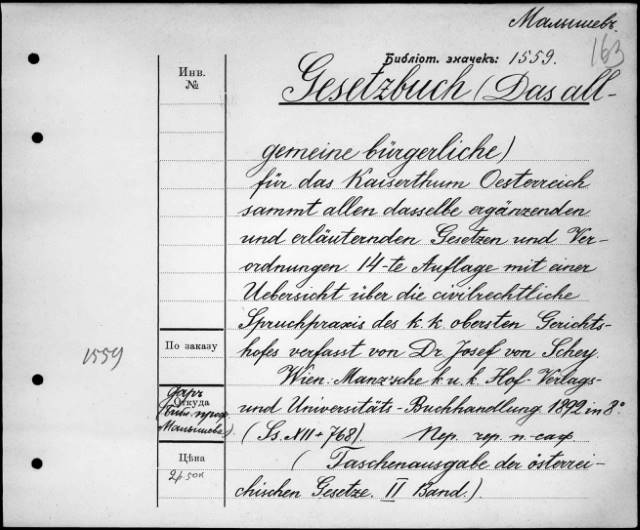 Малышевъ.
163
Библіот. значекъ: 1559.
Gesetzbuch (Das all-
gemeine bürgerliche)
für das Kaiserthum Oesterreich
sammt allen dasselbe ergänzenden
und erläuternden Gesetzen und Ver-
ordnungen. 14-te Auflage mit einer
Uebersicht über die civilrechtliche
Spruchpraxis des k. k. obersten Gerichts-
hofes verfasst von Dr. Josef von Schey.
Wien: Manz'sche k. u. k. Hof-Verlags-
und Universitäts-Buchhandlung 1892 in 8°
(Ss. XII + 768). Пер. чер. п-саф
(Taschenausgabe der österrei-
chischen Gesetze. II Band.).
Инв.
№
1559
По заказу
Откуда
Даръ
Библ. проф.
Малышева
Цѣна
2р. 50к